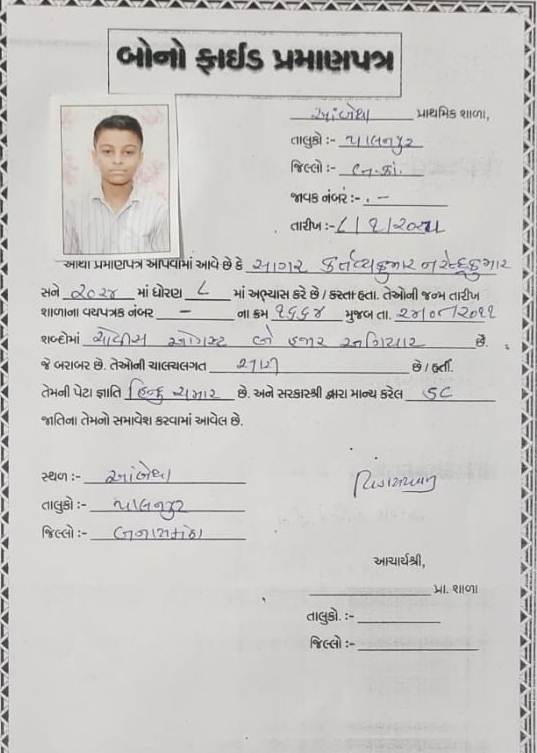 બોનો ફાઈડ પ્રમાણપત્ર
આંબેથા પ્રાથમિક શાળા,
તાલુકો :- પાલનપુર
જિલ્લો :- બ.કાં.
જાવક નંબર :- . –
તારીખ :-
આથી પ્રમાણપત્ર આપવામાં આવે છે કે સાગર કર્તવ્યકુમાર નરેન્દ્રકુમાર
સને ૨૦૨૪ માં ધોરણ ૮ માં અભ્યાસ કરે છે / કરતા હતા. તેઓની જન્મ તારીખ
શાળાના વયપત્રક નંબર – ના ક્રમ ૧૬૬૪ મુજબ તા.
શબ્દોમાં ચોવીસ ઓગસ્ટ બે હજાર અગિયાર છે.
જે બરાબર છે. તેઓની ચાલચલગત સારી છે / હતી.
તેમની પેટા જ્ઞાતિ હિન્દુ ચમાર છે. અને સરકારશ્રી દ્વારા માન્ય કરેલ SC
જાતિના તેમનો સમાવેશ કરવામાં આવેલ છે.
સ્થળ :- આંબેથા
તાલુકો :- પાલનપુર
જિલ્લો :- બનાસકાંઠા
આચાર્યશ્રી,
પ્રા. શાળા
તાલુકો. :-
જિલ્લો :-